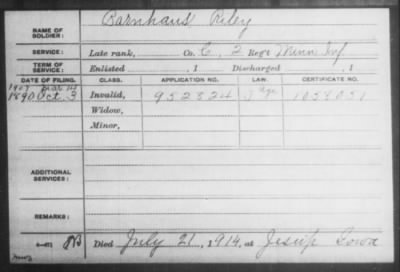 Barnhaus Riley
NAME OF SOLDIER:
SERVICE: Late rank, Co. C, 2 Reg't Minn Inf
TERM OF SERVICE: Enlisted , 1 Discharged , 1
DATE OF FILING. CLASS. APPLICATION NO. LAW. CERTIFICATE NO.
1907 Mar 14
1890 Oct 3 Invalid, 952824 J age 1058051
Widow,
Minor,
ADDITIONAL SERVICES:
REMARKS:
Died July 21, 1914, at Jesup Iowa